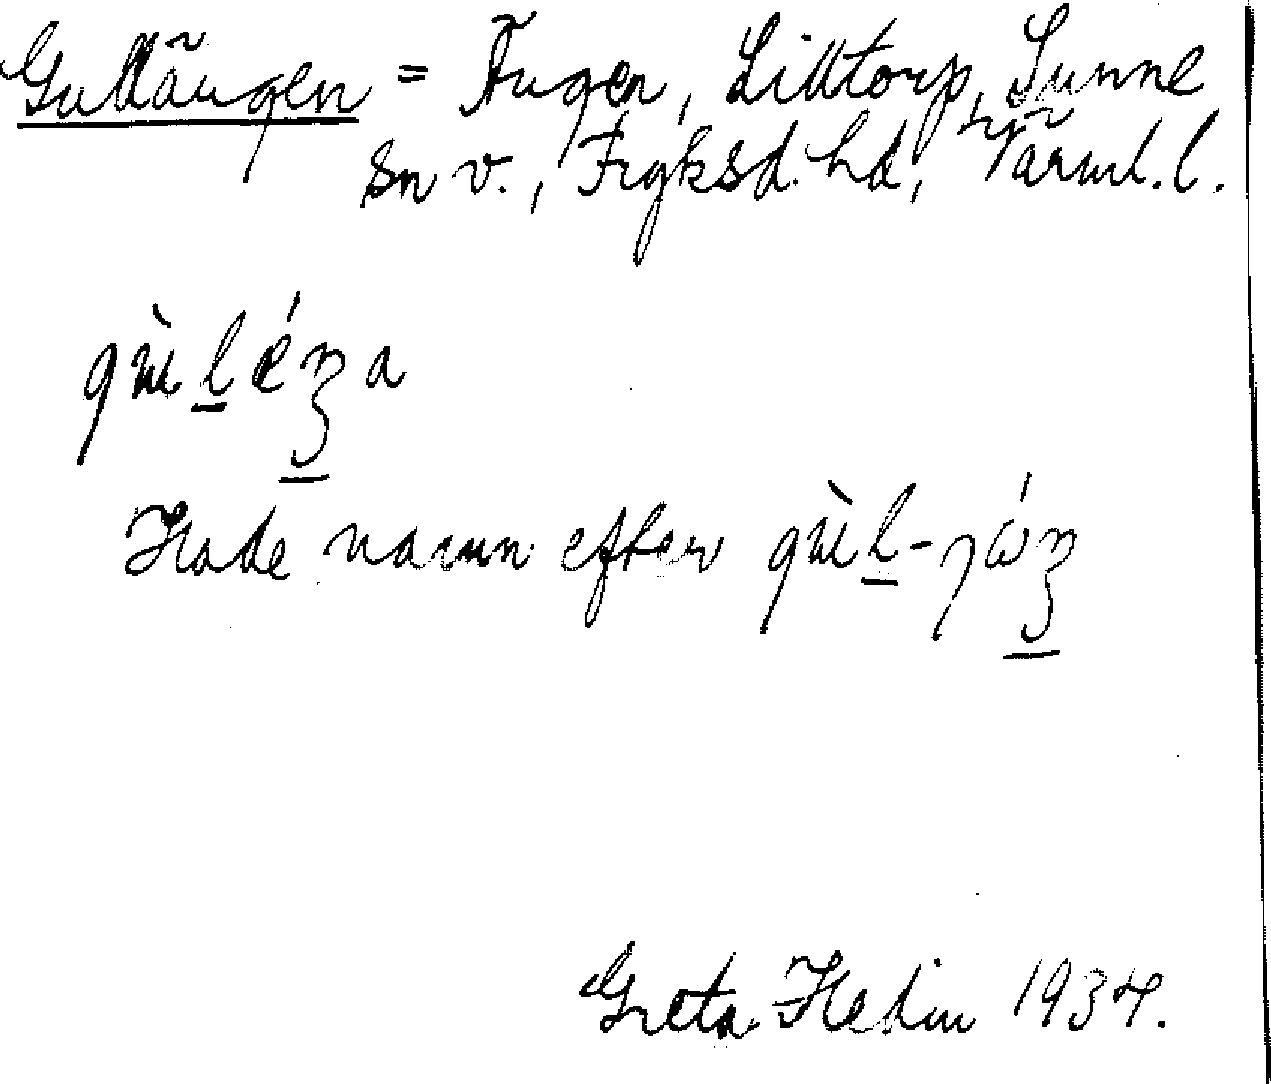 Gullängen = Ängen, Lilltorp, Sunne
sn v., Fryksd. hd, Värml. l.
gùlǽŋa
Hade namn efter gùl-jóŋ
Greta Hedin 1934.